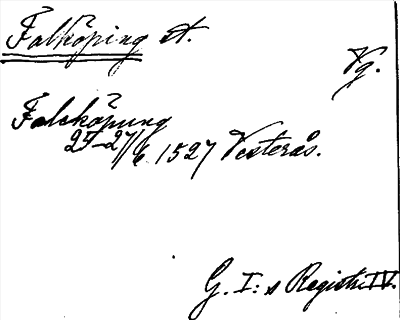 Falköping st.
Vg.
Falcköpung
25-27/6 1527 Vesterås.
G. I:s Registr. IV.